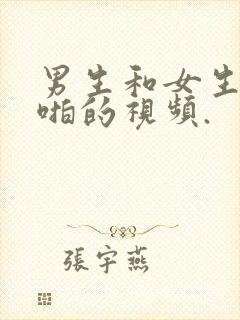 男生和女生
啪的視頻.
張宇燕